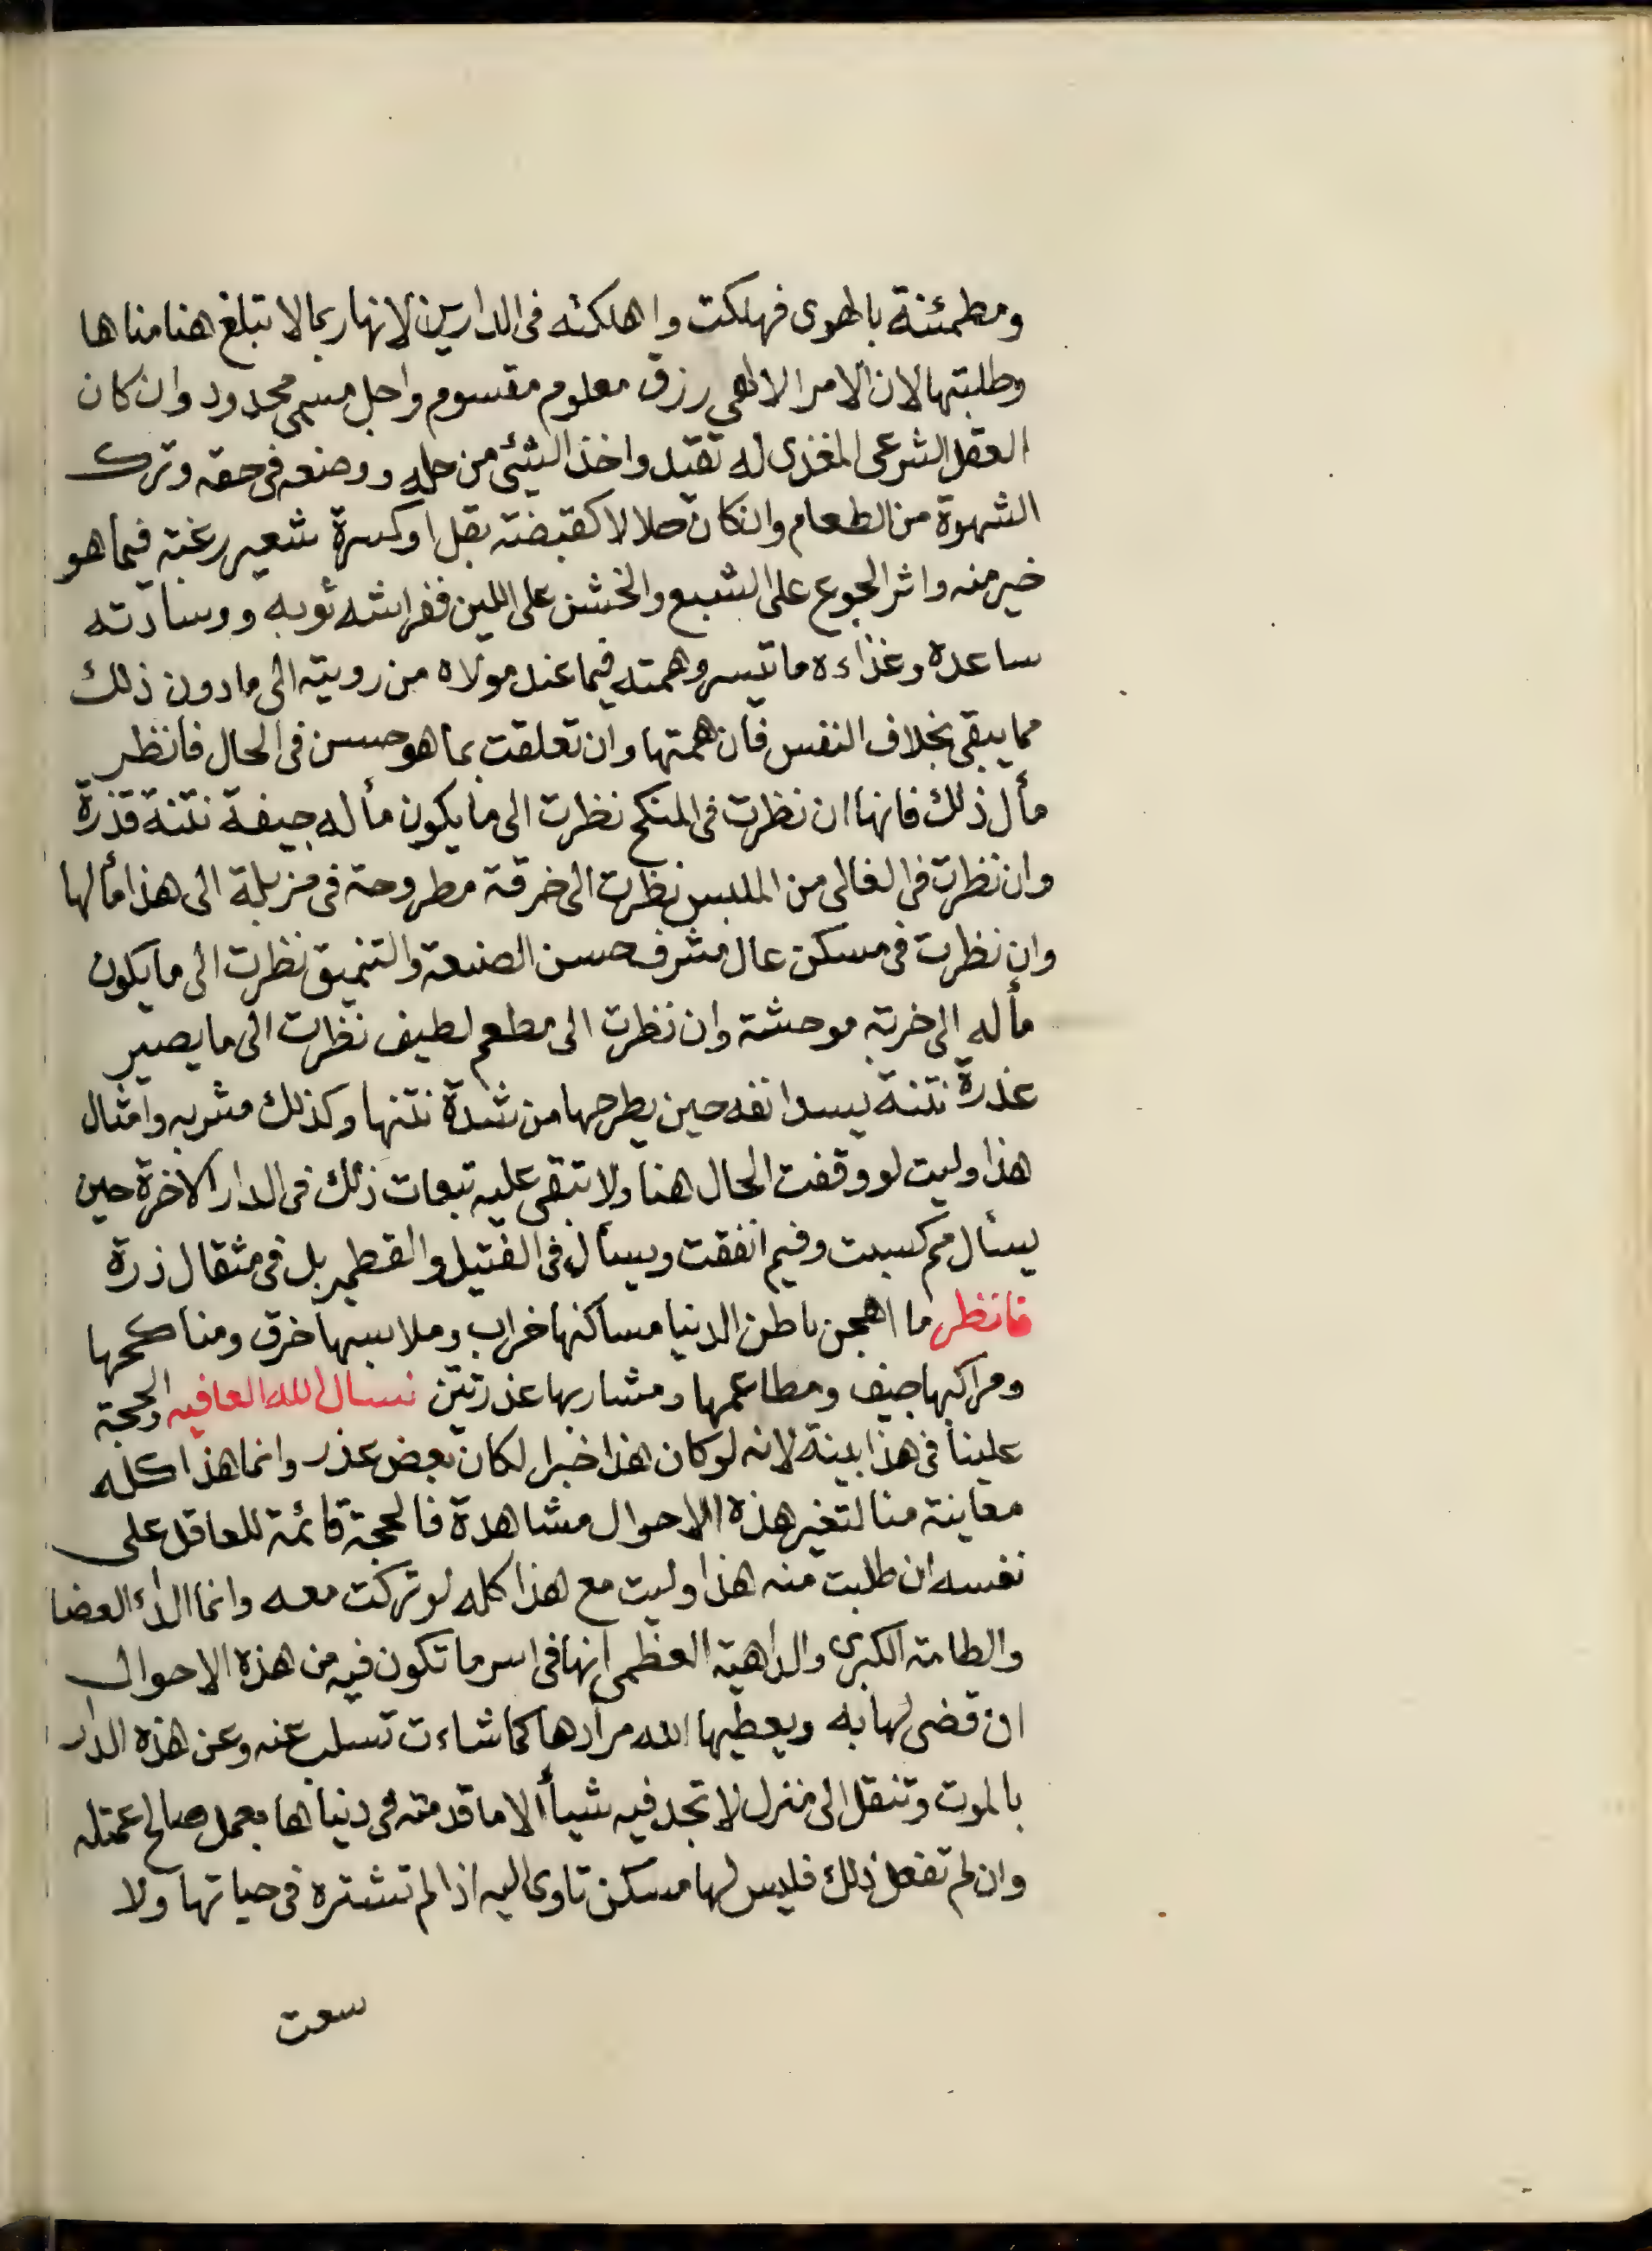 ومطمئنة بالهوى فهلكت واهلكته فى الدارين لانها ربما لا تبلغ هنا مناها
وطلبتها لان الامر الالهى رزق معلوم مقسوم واجل مسمى محدود وان كان
العقل الشرعى المغذى له تقيد واخذ الشئى من حله ووضعه فى حقه وترك
الشهوة من الطعام وان كان حلالا كقبضة بقل او كسرة شعير رغبة فيما هو
خير منه واثر الجوع على الشبع والخشن على اللين ففراشه ثوبه ووسادته
ساعده وغذاءه ما تيسر وهمته فيما عند مولاه من رويته الى ما دون ذلك
مما يبقى بخلاف النفس فان همتها وان تعلقت بما هو حسن فى الحال فانظر
مأل ذلك فانها ان نظرت فى المنكح نظرت الى ما يكون مأله جيفة نتنة قذرة
وان نظرت فى الغالى من الملبس نظرت الى خرقة مطروحة فى مزبلة الى هذا مألها
وان نظرت فى مسكن عال مشرف حسن الصنعة والتنميق نظرت الى ما يكون
مأله الى خربة موحشة وان نظرت الى مطعم لطيف نظرت الى ما يصير
عذرة نتنة يسد انفه حين يطرحها من شدة نتنها وكذلك مشربه وامثال
هذا وليت لو وقفت الحال هنا ولا تبقى عليه تبعات ذلك فى الدار الاخرة حين
يسأل مم كسبت وفيم انفقت ويسأل فى الفتيل والقطمير بل فى مثقال ذرة
فانظر ما اهجن باطن الدنيا مساكنها خراب وملابسها خرق ومناكحها
ومراكبها جيف ومطاعمها ومشاربها عذرتين نسال الله العافيه والحجة
علينا فى هذا بينة لانه لو كان هذا خبرا لكان بعض عذر وانما هذا كله
معاينة منا لتغير هذه الاحوال مشاهدة فالحجة قائمة للعاقل على
نفسه ان طلبت منه هذا وليت مع هذا كله لو تركت معه وانما الداء العضا
والطامة الكبرى والداهية العظمى انها فى اسر ما تكون فيه من هذه الاحوال
ان قضى لها به ويعطيها الله مرادها كما شاءت تسلب عنه وعن هذه الدار
بالموت وتنقل الى منزل لا تجد فيه شيأ الا ما قدمته فى دنياها بعمل صالح عمتله
وان لم تفعل ذلك فليس لها مسكن تاوى اليه اذا لم تشتره فى حياتها ولا
سعت